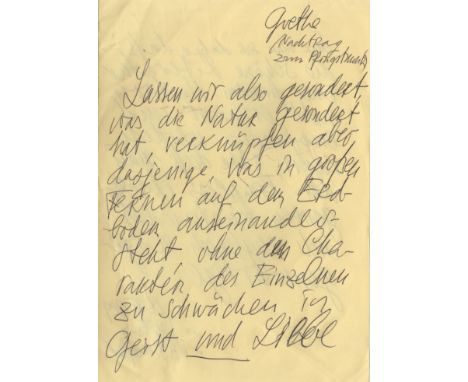 Goethe
Nachtrag
zum
Lassen wir also gesondert,
was die Natur gesondert
hat, verknüpfen aber
dasjenige, was in großen
Fernen auf dem Erd-
boden auseinander-
steht ohne den Cha-
rakter des Einzelnen
zu schwächen in
Geist und Liebe